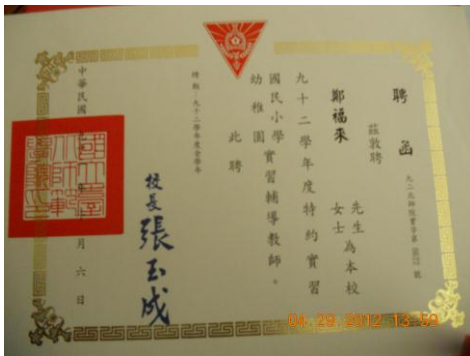 聘函
茲敦聘
鄭福來 先生 女士 為本校
九十二學年度特約實習
國民小學 幼稚園 實習輔導教師。
此聘
聘期:九十二學年度全學年
校長 張玉成
中華民國 月六日
04.29.2012 13:59